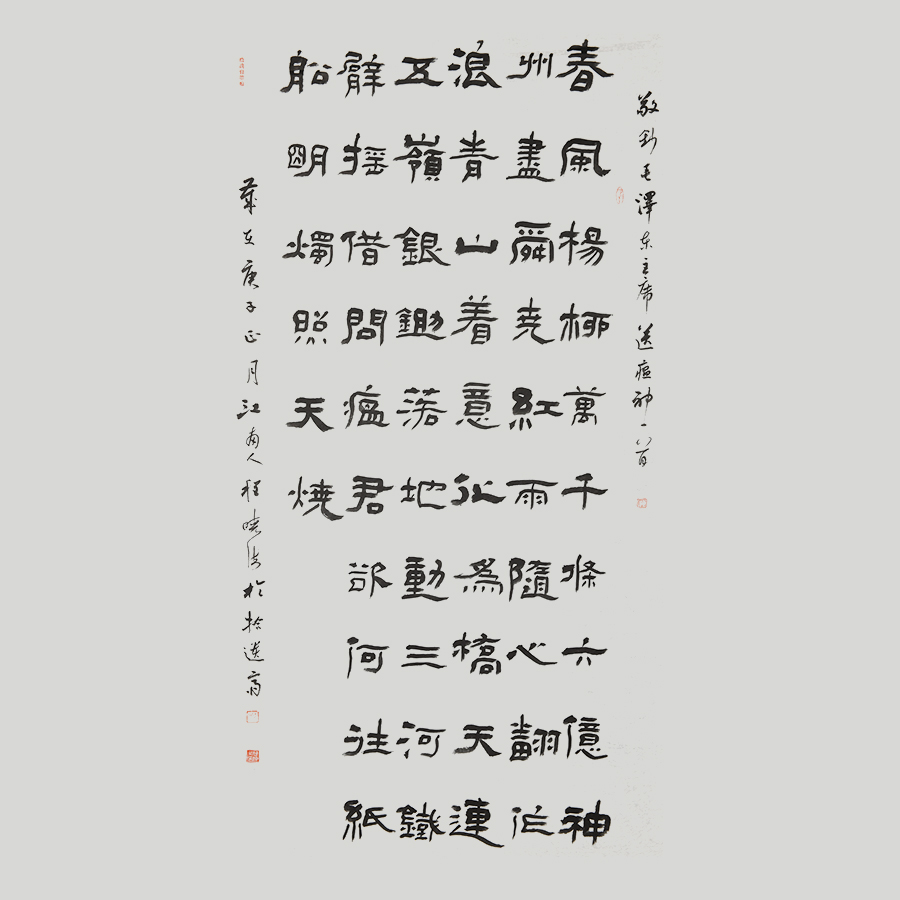 敬鈔毛澤东主席送瘟神一首
春風楊柳萬千條六億神
州盡舜堯紅雨隨心翻作
浪青山着意化為橋天連
五嶺銀鋤落地動三河鐵
臂摇借問瘟君欲何往紙
船明燭照天燒
歲在庚子正月江南人程曉於拾遺齋